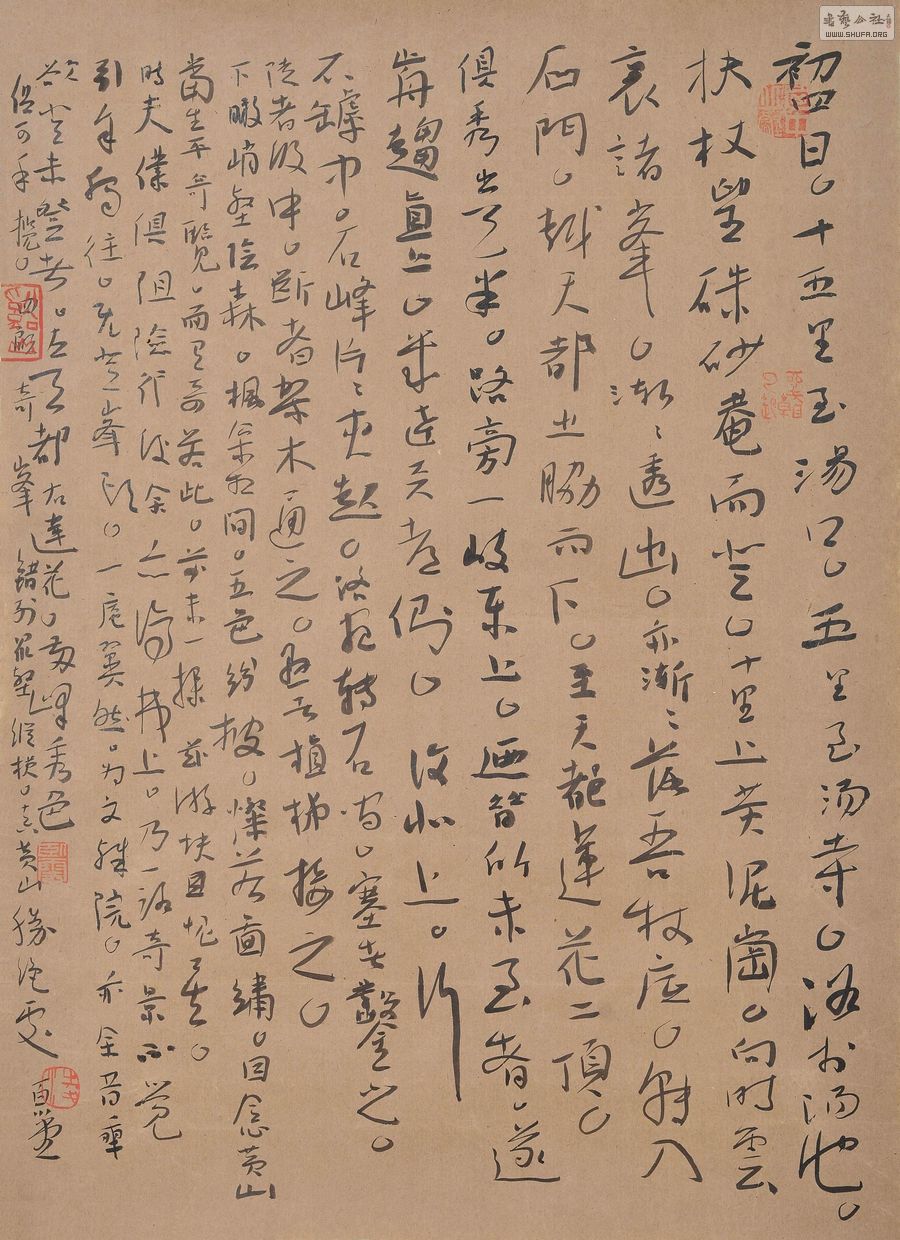 初四日。十五里至湯口。五里至湯寺。浴於湯池。
扶杖望硃砂菴而登。十里上黃泥崗。向時雲
裏諸峯。漸〻透出。亦漸〻落吾杖底。轉入
石門。越天都之脇而下。至天都蓮花二頂。
俱秀出天半。路旁一岐東上。迺昔所未至者。遂
前趨直上。幾達天都側。復北上。行
石罅中。石峰片〻夾起。路宛轉石間。塞者鑿之。
陡者級中。斷者架木通之。懸者植梯接之。
下瞰峭壑陰森。楓松相間。五色紛披。燦若圖繡。因念黃山
當生平奇覽。而有奇若此。前未一探。茲游快且愧矣。
時夫僕俱阻險行後余亦停弗上。乃一路奇景不覺
引余獨往。既登峯頭。一庵翼然。為文殊院。亦余昔年
欲登未登者。左天都右蓮花。兩峰秀色
俱可手攬。四顧奇峯錯列衆壑縱橫。真黃山勝絕處
書藝公社
WWW.SHUFA.ORG